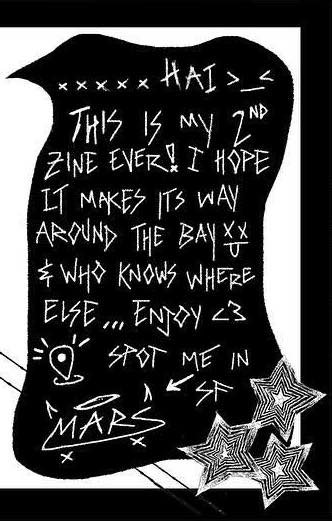 xxxxx HAI >_<
THIS IS MY 2ND
ZINE EVER! I HOPE
IT MAKES ITS WAY
AROUND THE BAY xx
& WHO KNOWS WHERE
ELSE... ENJOY <3
SPOT ME IN
SF
MARS